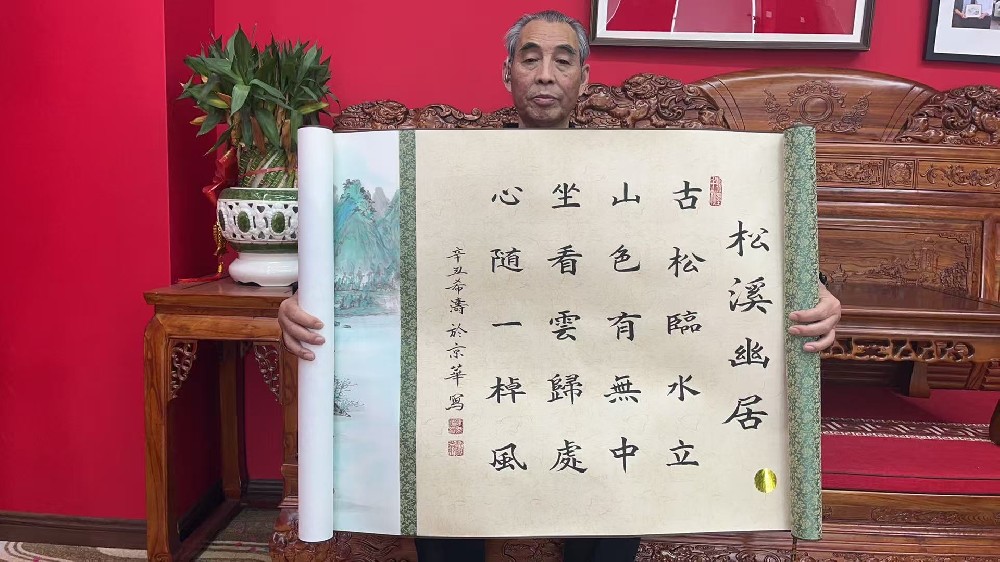 松溪幽居
古松臨水立
山色有無中
坐看雲歸處
心随一棹風
辛丑希濤於京華寫